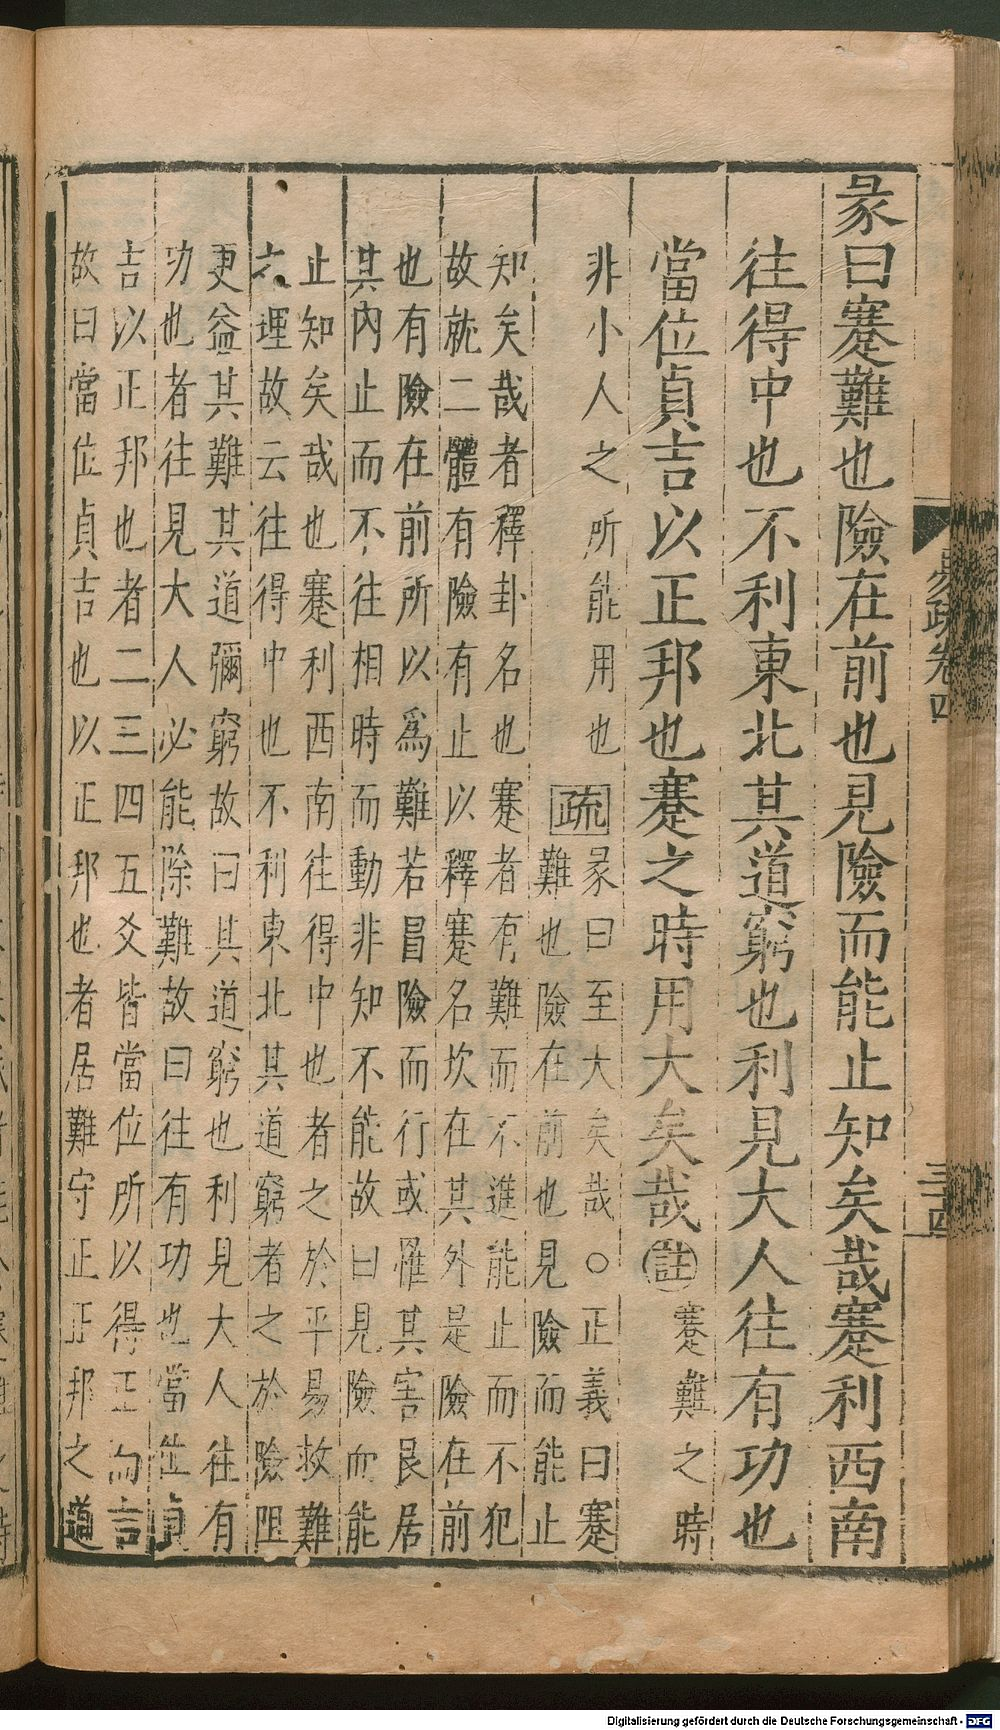 彖曰蹇難也險在前也見險而能止知矣哉蹇利西南
往得中也不利東北其道窮也利見大人往有功也
當位貞吉以正邦也蹇之時用大矣哉註蹇難之時
非小人之所能用也疏彖曰至大矣哉○正義曰蹇
難也險在前也見險而能止
知矣哉者釋卦名也蹇者有難而不進能止而不犯
故就二體有險有止以釋蹇名坎在其外是險在前
也有險在前所以爲難若冒險而行或罹其害艮居
其內止而不往相時而動非知不能故曰見險而能
止知矣哉也蹇利西南往得中也者之於平易救難
理故云往得中也不利東北其道窮者之於險阻
更益其難其道彌窮故曰其道窮也利見大人往有
功也者往見大人必能除難故曰往有功也當位貞
吉以正邦也者二三四五爻皆當位所以得正言
故曰當位貞吉也以正邦也者居難守正正邦之道
易疏卷四
三四
Digitalisierung gefördert durch die Deutsche Forschungsgemeinschaft - DFG